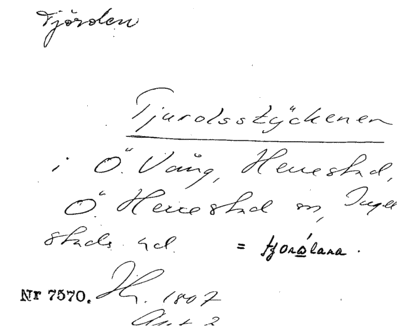 Tjörden
Tjurolsstÿckenen
i Ö. Vång, Herrestad,
Ö. Herrestad sn, Inge
stads hd. = tjorålara.
Nr 7570. Jh. 1807